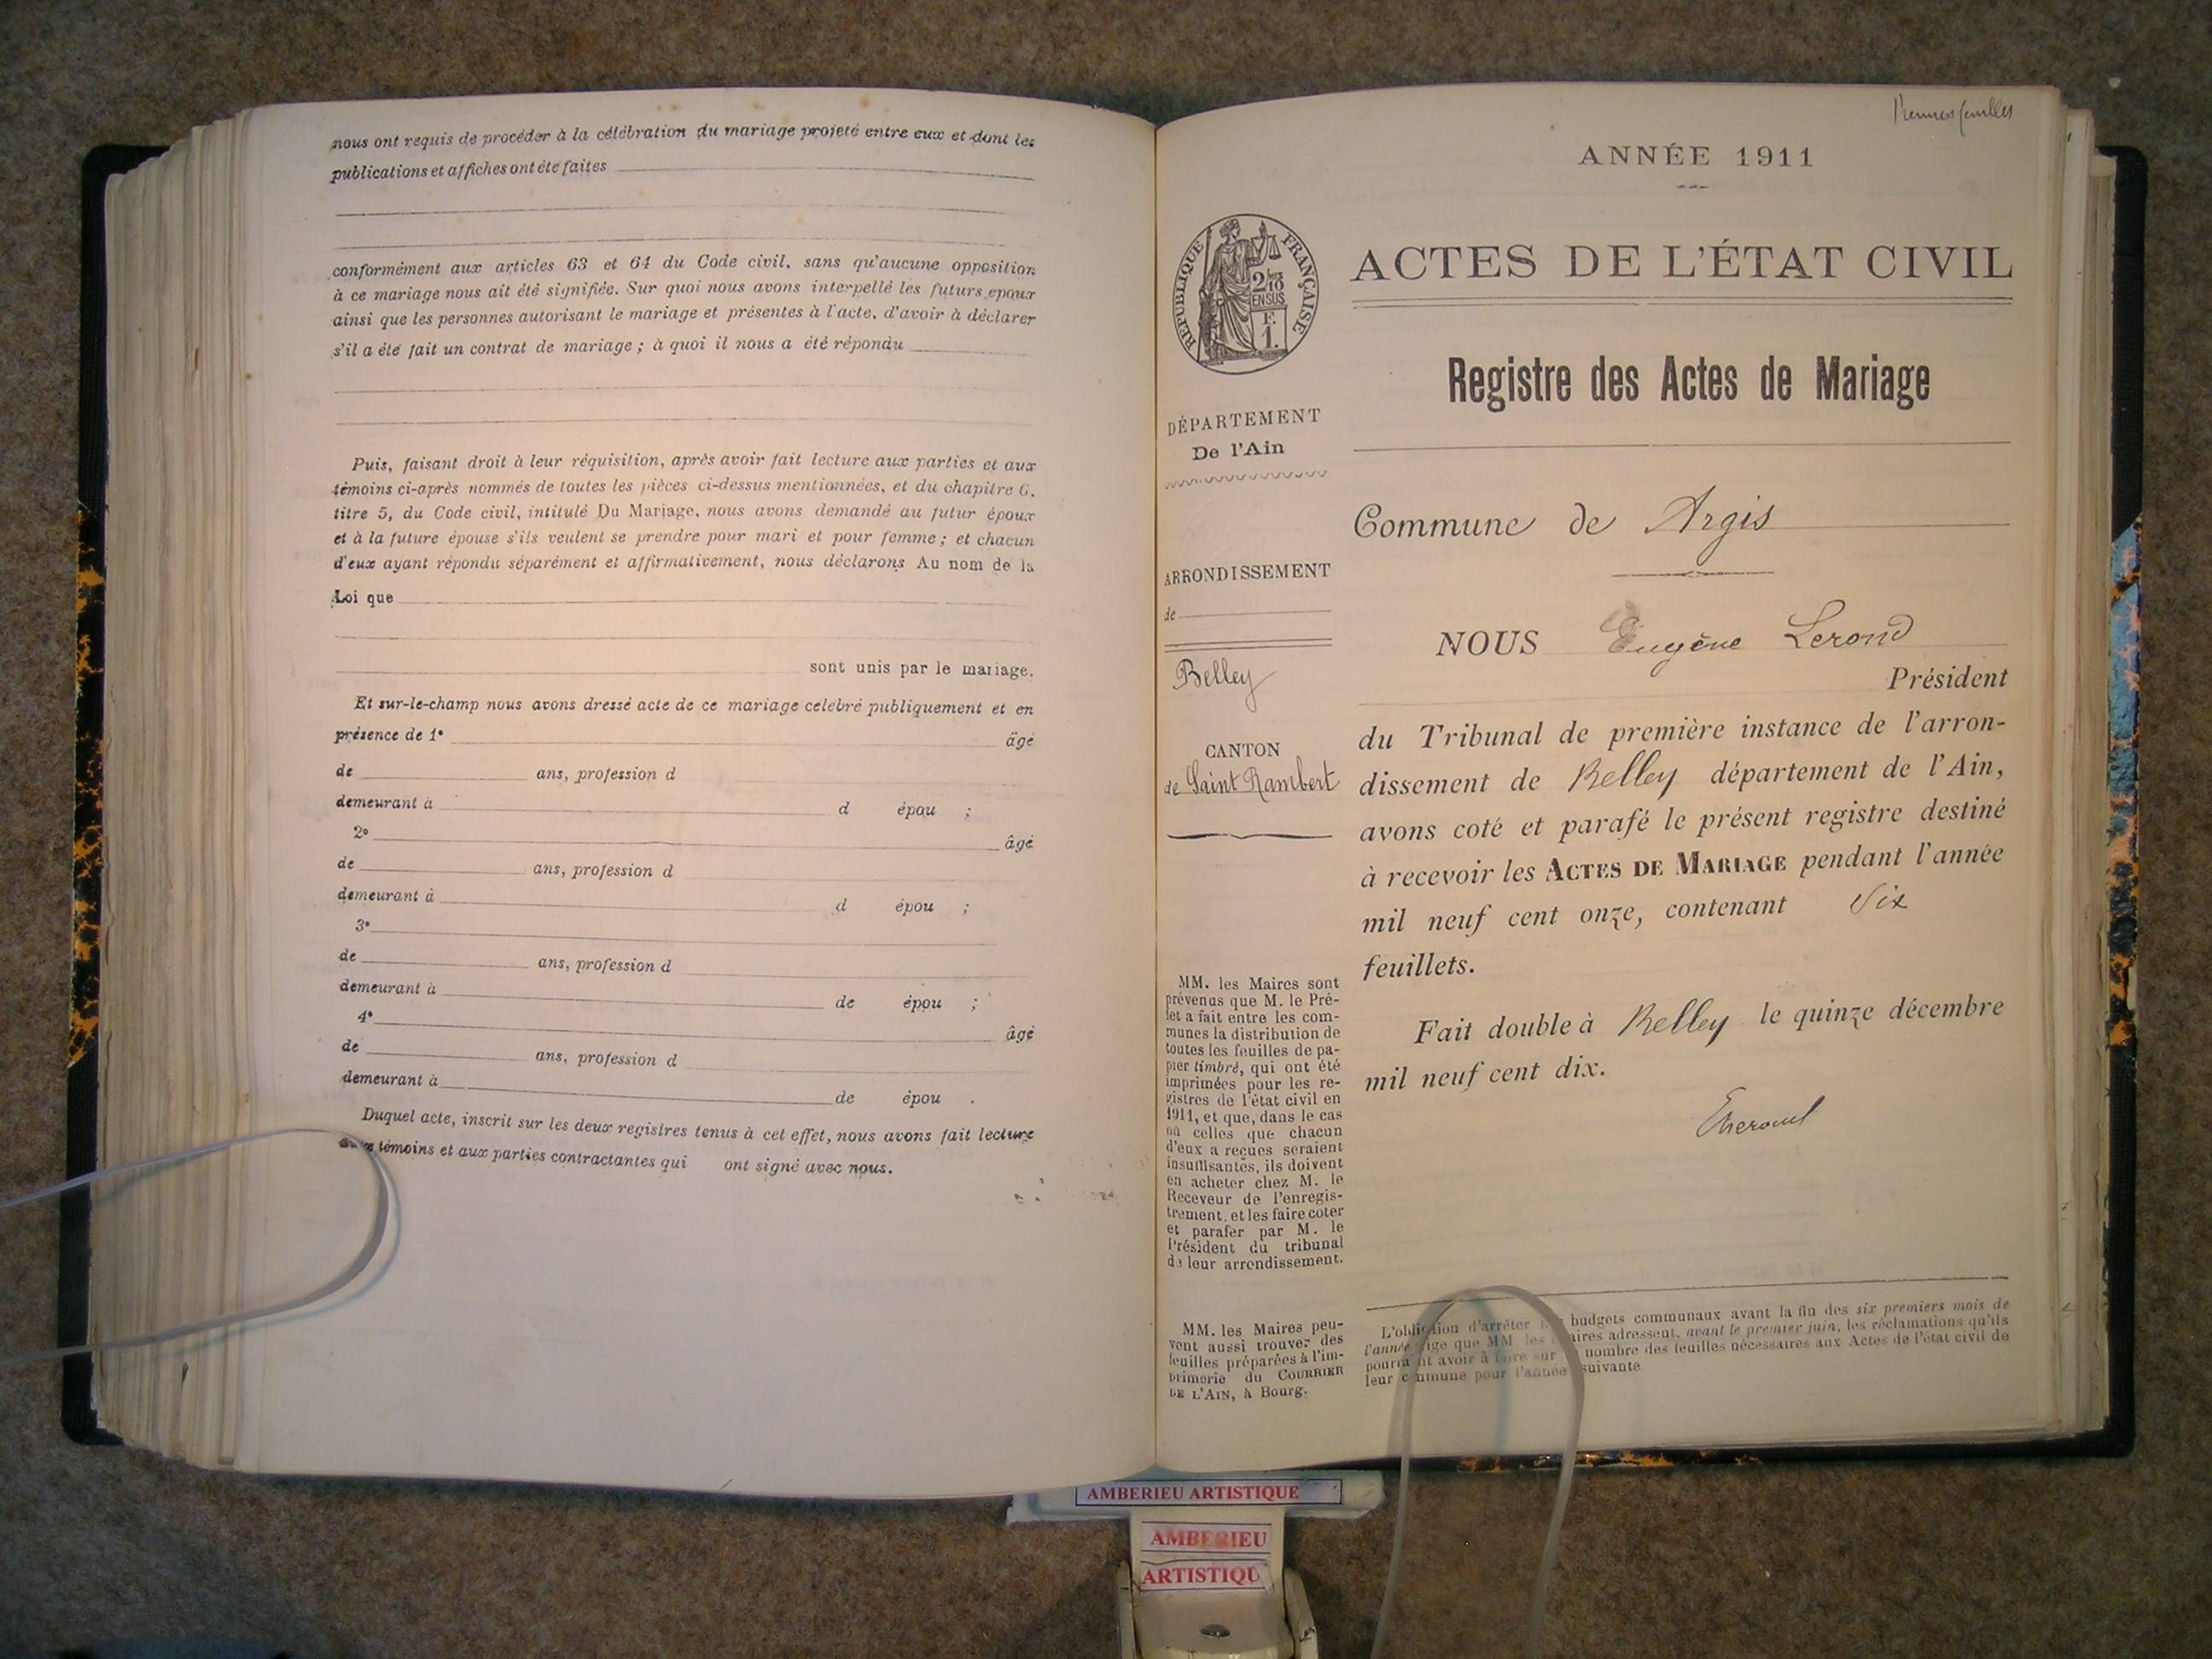 nous ont requis de procéder à la célébration du mariage projeté entre eux et dont les
publications et affiches ont été faites
conformément aux articles 63 et 64 du Code civil, sans qu'aucune opposition
à ce mariage nous ait été signifiée. Sur quoi nous avons interpellé les futurs epoux
ainsi que les personnes autorisant le mariage et présentes à l'acte, d'avoir à déclarer
s'il a été fait un contrat de mariage ; à quoi il nous a été répondu
Puis, faisant droit à leur réquisition, après avoir fait lecture aux parties et aux
témoins ci-après nommés de toutes les pièces ci-dessus mentionnées, et du chapitre 6,
titre 5, du Code civil, intitulé Du Mariage, nous avons demandé au futur époux
et à la future épouse s'ils veulent se prendre pour mari et pour femme ; et chacun
d'eux ayant répondu séparément et affirmativement, nous déclarons Au nom de la
Loi que
sont unis par le mariage.
Et sur-le-champ nous avons dressé acte de ce mariage celebré publiquement et en
présence de 1°
âgé
de ans, profession d
demeurant à d épou ;
2° âgé
de ans, profession d
demeurant à d épou ;
3°
de ans, profession d
demeurant à de épou ;
4° âgé
de ans, profession d
demeurant à de épou .
Duquel acte, inscrit sur les deux registres tenus à cet effet, nous avons fait lecture
témoins et aux parties contractantes qui ont signé avec nous.
ANNÉE 1911
RÉPUBLIQUE FRANÇAISE
2 10
EN SUS
F.
1.
ACTES DE L'ÉTAT CIVIL
Registre des Actes de Mariage
DÉPARTEMENT
De l'Ain
ARRONDISSEMENT
de
Belley
CANTON
de Saint Rambert
MM. les Maires sont
prévenus que M. le Pré-
fet a fait entre les com-
munes la distribution de
toutes les feuilles de pa-
pier timbré, qui ont été
imprimées pour les re-
gistres de l'état civil en
1911, et que, dans le cas
où celles que chacun
d'eux a reçues seraient
insuffisantes, ils doivent
en acheter chez M. le
Receveur de l'enregis-
trement, et les faire coter
et parafer par M. le
Président du tribunal
de leur arrondissement.
MM. les Maires peu-
vent aussi trouver des
feuilles préparées à l'im-
primerie du COURRIER
DE L'AIN, à Bourg.
Commune de Argis
NOUS Eugène Lerond
Président
du Tribunal de première instance de l'arron-
dissement de Belley département de l'Ain,
avons coté et parafé le présent registre destiné
à recevoir les ACTES DE MARIAGE pendant l'année
mil neuf cent onze, contenant Six
feuillets.
Fait double à Belley le quinze décembre
mil neuf cent dix.
L'obligation d'arrêter les budgets communaux avant la fin des six premiers mois de
l'année exige que MM. les Maires adressent, avant le premier juin, les réclamations qu'ils
pourraient avoir à faire sur le nombre des feuilles nécessaires aux Actes de l'état civil de
leur commune pour l'année suivante
AMBERIEU ARTISTIQUE
AMBERIEU
ARTISTIQU